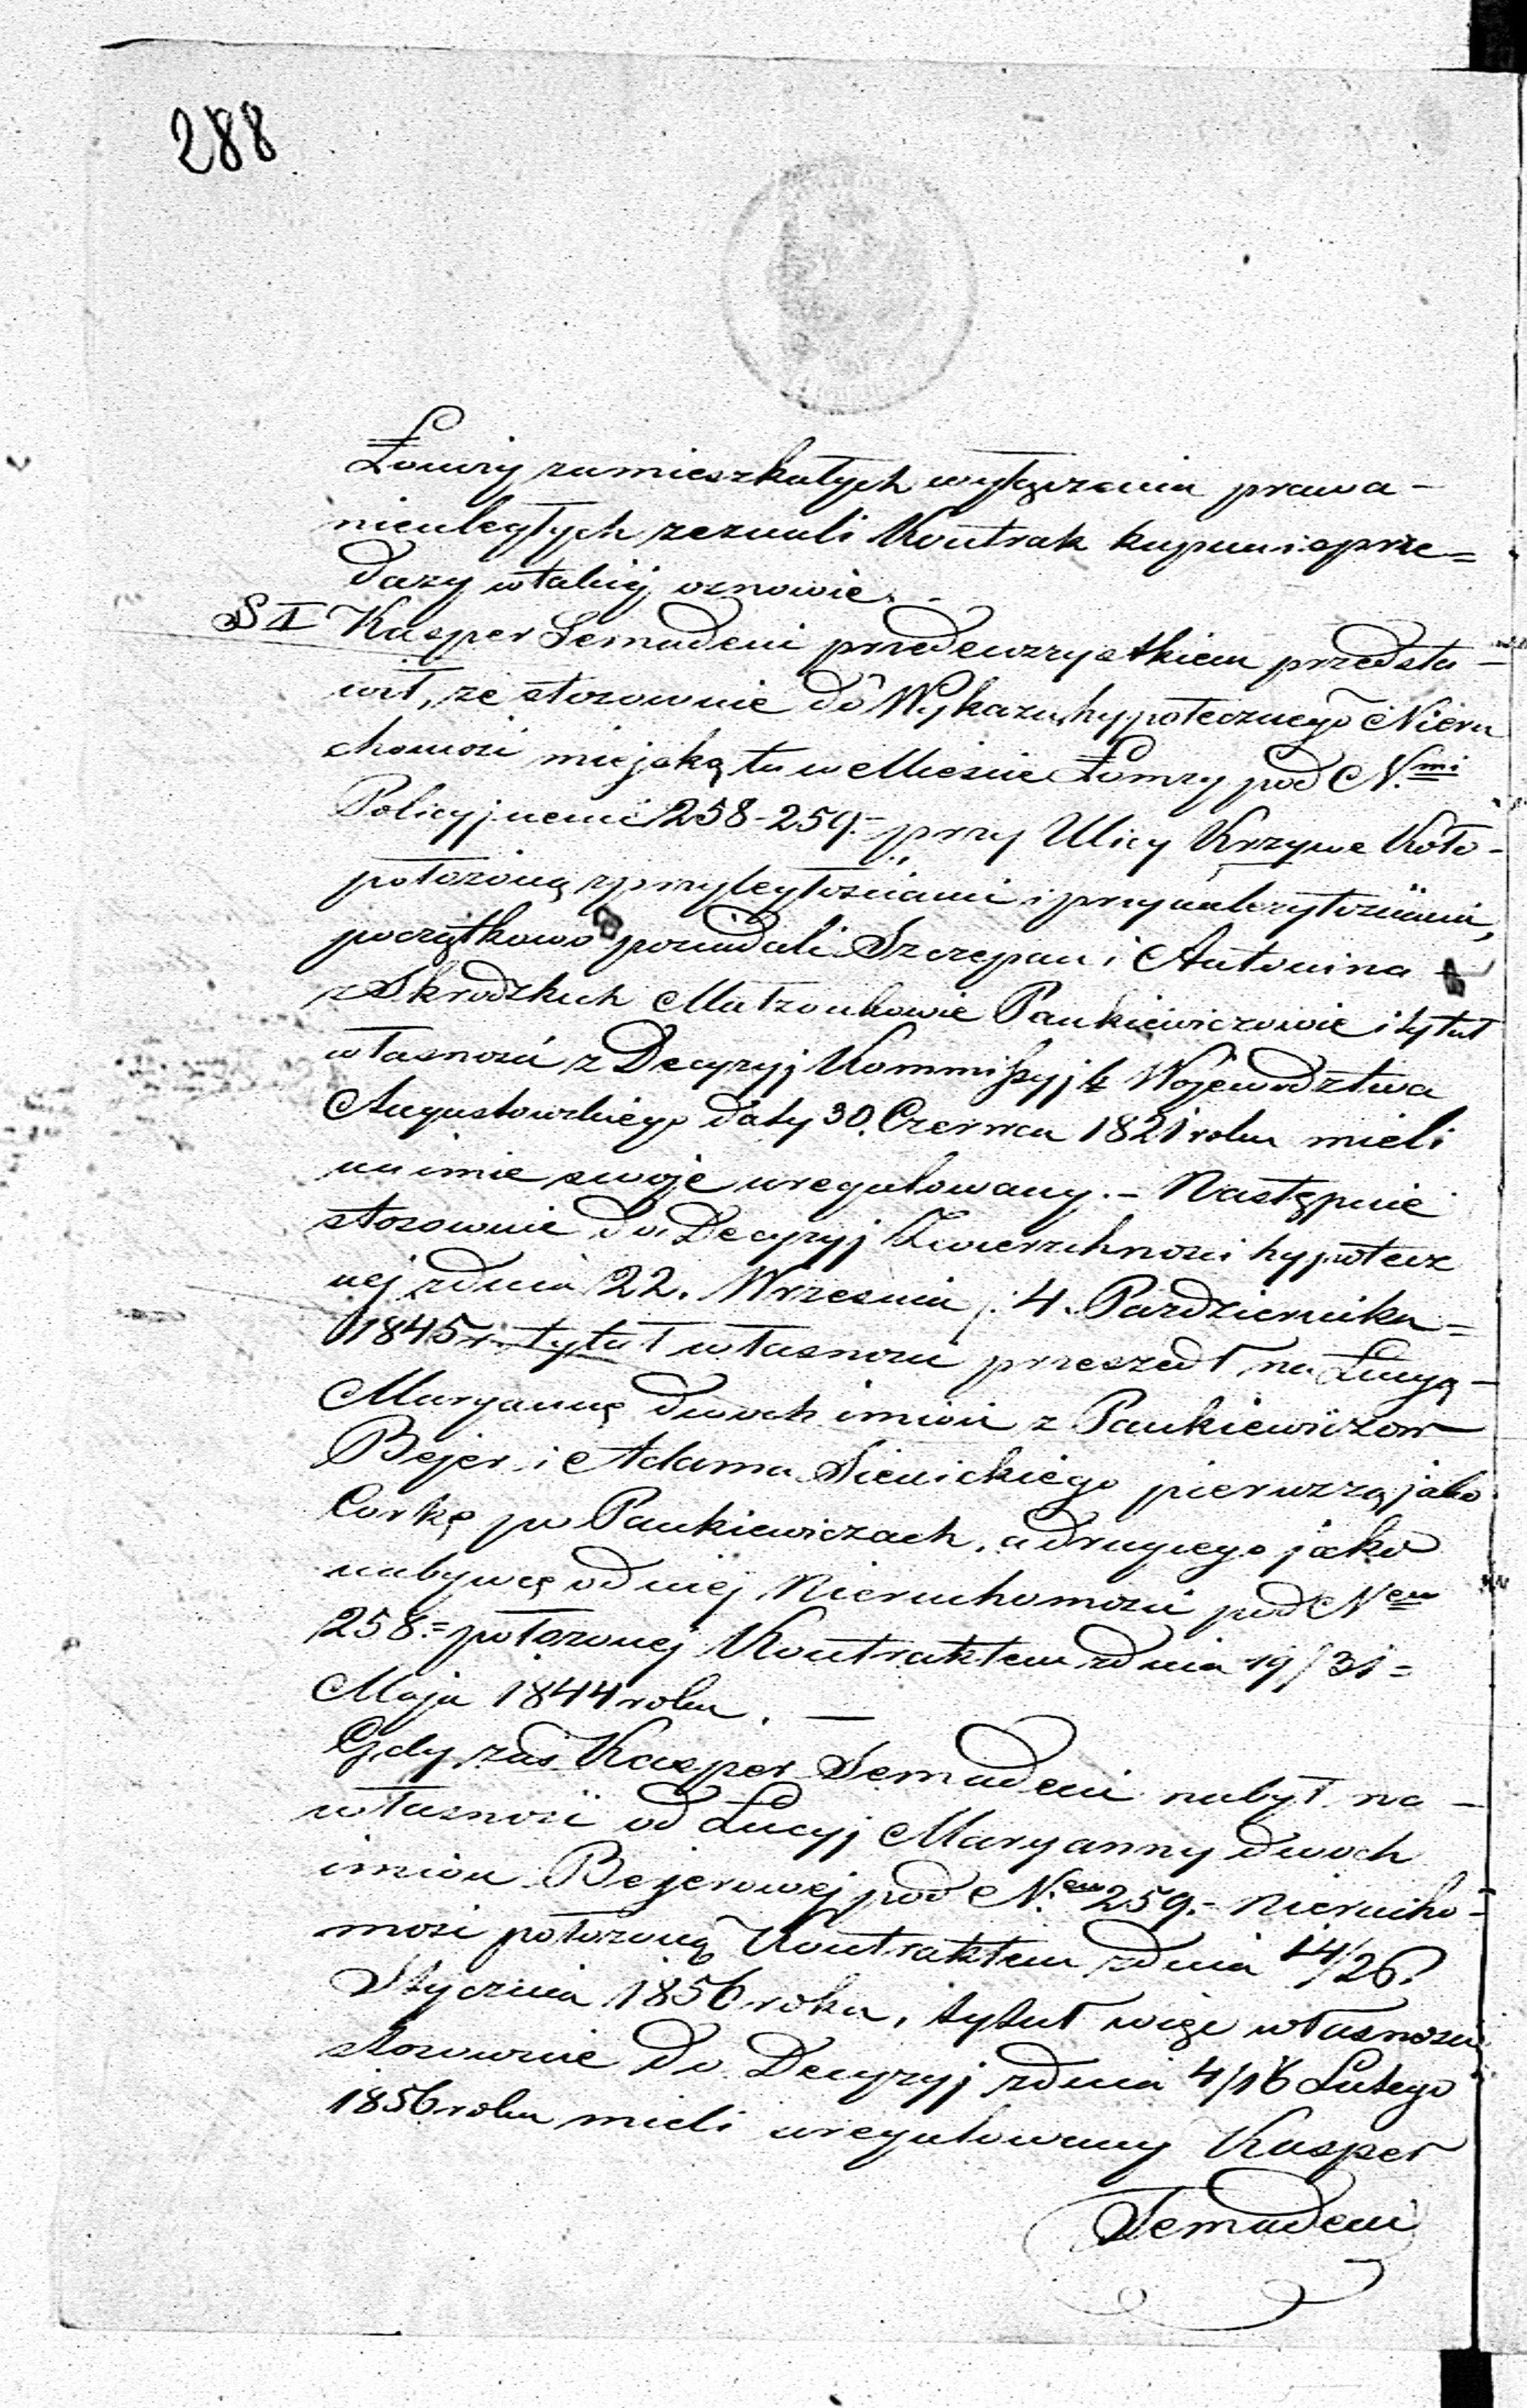 288
Łomży zamieszkałych wyłączenia prawa -
nieuległych zeznali Kontrak kupna i sprze=
dazy w takiéj osnowie. -
§ I Kasper Semadeni przedewszystkiem przedsta -
wił, ze stosownie do Wykazu hypotecznego Nieru
chomosi miejską tu w Miescie Łomzy pod N.mi
Policyjnemi 258-259.- przy Ulicy Krzywe Koło -
położoną z przyległościami i przynależytościami,
początkowo posiadali Szczepan i Antonina
z Skrodzkich Małzonkowie Pankiewiczowie i tytuł
własnosci z Decyzyj Kommissyj Województwa
Augustowskiego daty 30. Czerwca 1821 roku mieli
na imie swoje uregulowany. - Następnie
stosownie do Decyzyj Zwierzchnosci hypotecz
nej z dnia 22. Wrzesnia /: 4. Pazdziernika =
1845 r. tytuł własnosci przeszedł na Lucyą -
Maryannę dwoch imion z Pankiewiczow
Bejer i Adama Sienickiego pierwszą jako
Corkę po Pankiewiczach, a drugiego jako
nabywcę od niej Nieruchomosci pod Nem
258.= położonej Kontraktem z dnia 19/31 =
Maja 1844 roku. —
Gdy zaś Kasper Semadeni nabył na -
własność od Lucyj Maryanny dwoch
imion Bejerowej pod N.em 259.- Nierucho-
mosi położoną Kontraktem z dnia 14/26.
Stycznia 1856 roku, tytuł więc własnosci
stosownie do Decyzyj z dnia 4/16 Lutego
1856 roku mieli uregulowany Kasper
Semadeni